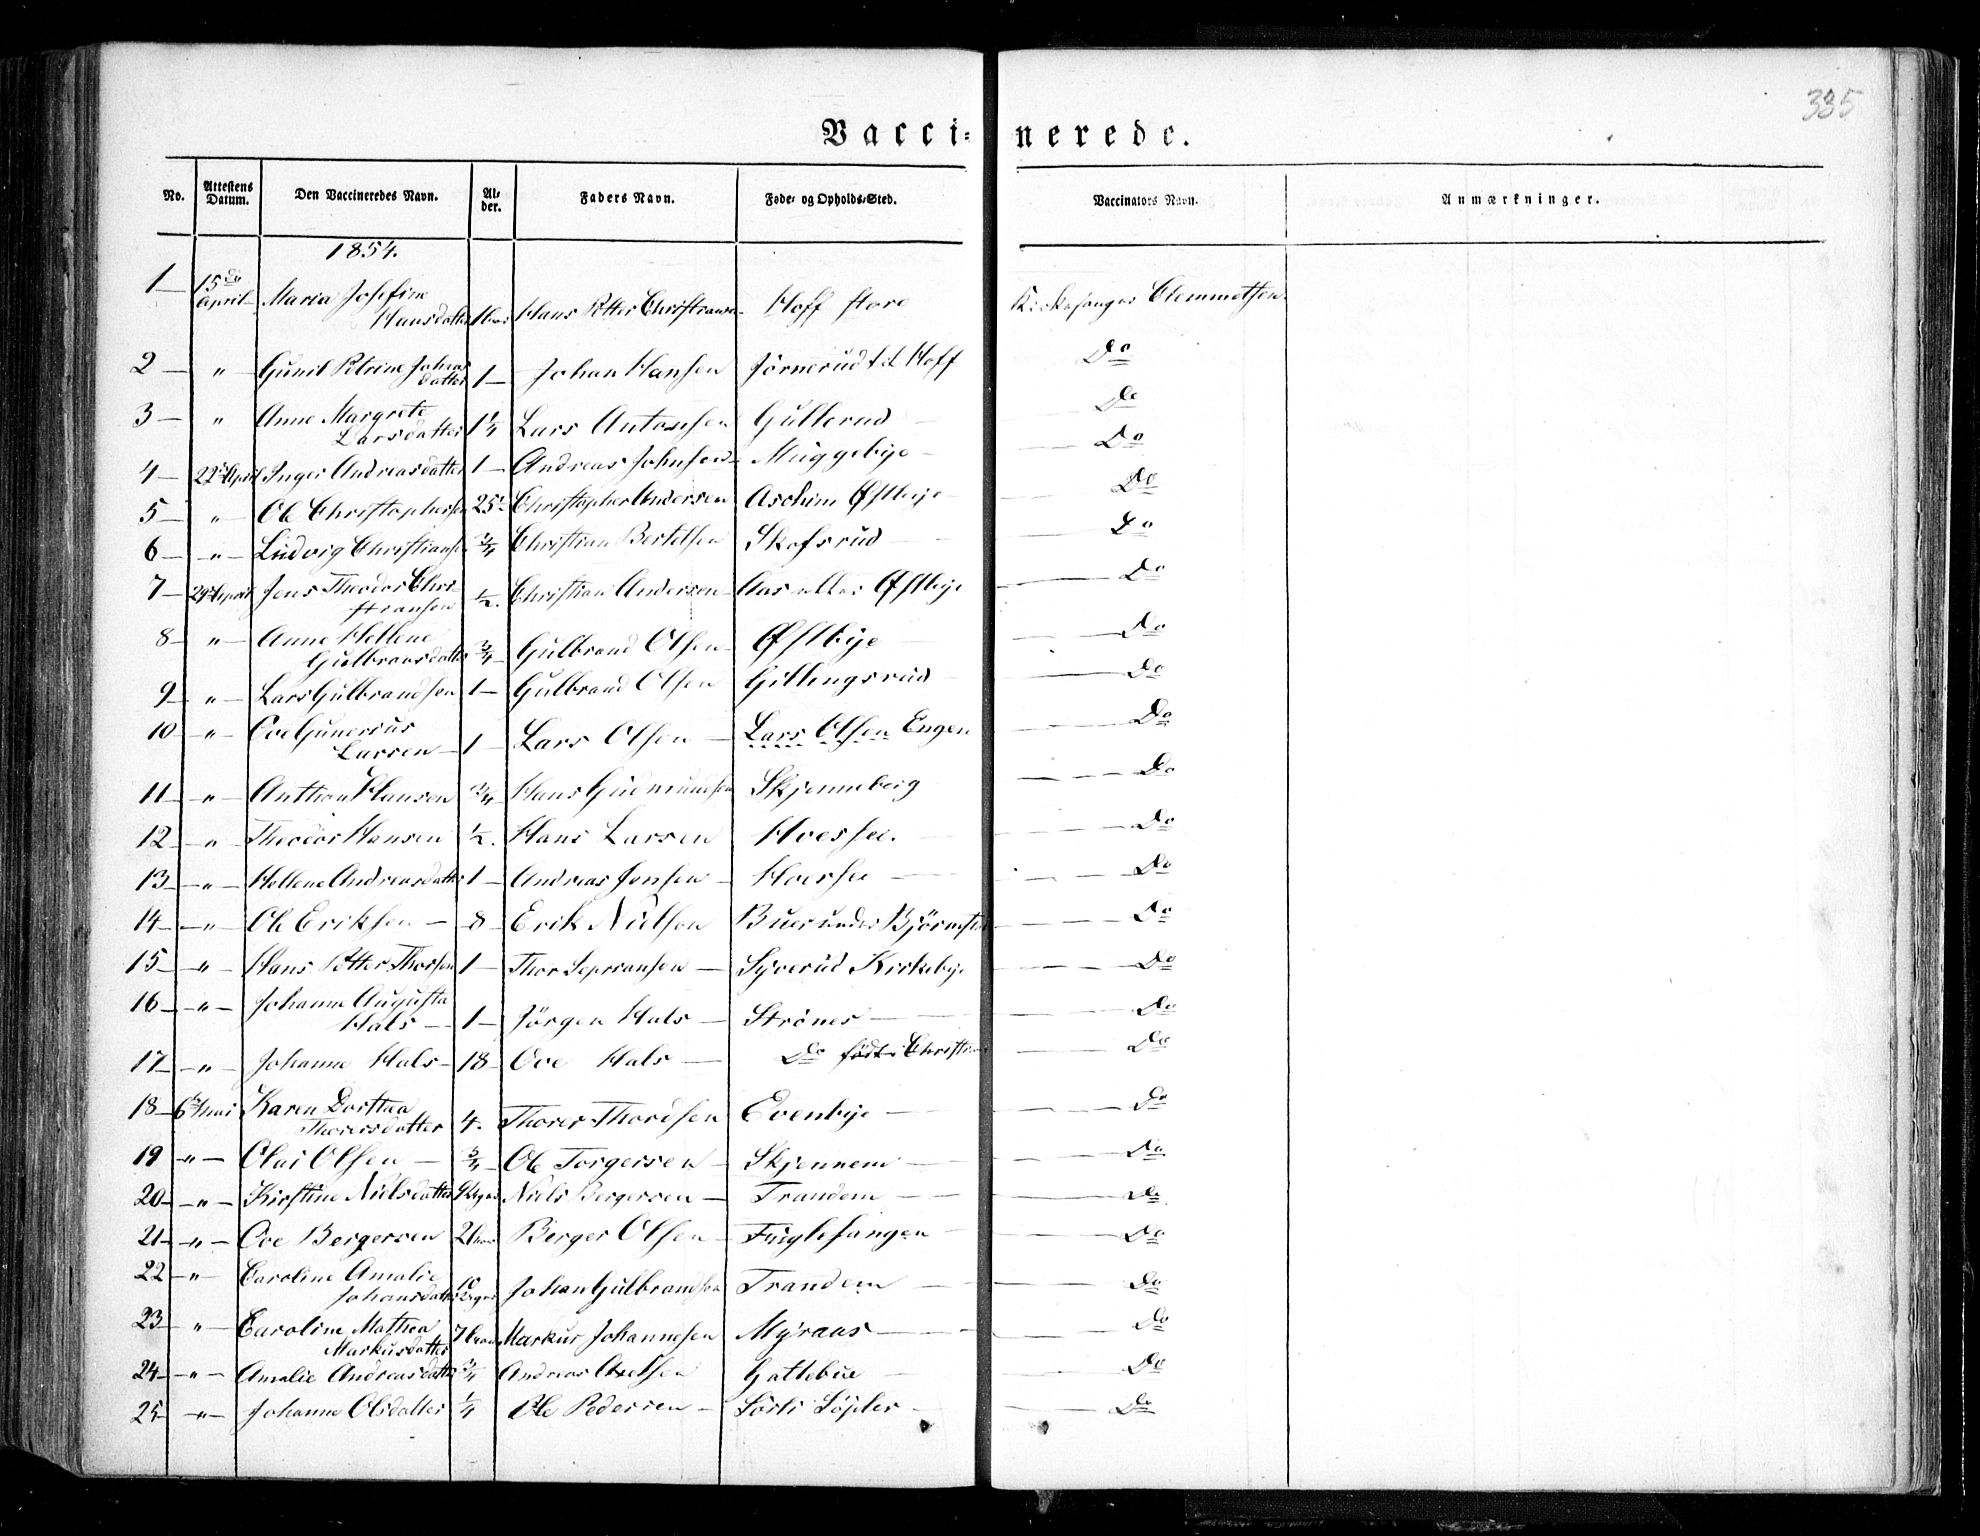 335
Vacci- nerede.
No. Attestens Datum. Den Vaccineredes Navn. Al- der. Faders Navn. Føde- og Opholds-Sted. Vaccinators Navn. Anmærkninger.
1854.
1 — 15de April Maria Josefine Hansdatter Hans Petter Christiansen Hoff store Kirkesanger Clemmetsen
2 — " — Gunil Petrine Johansdatter 1 — Johan Hansen Jörnerud t.l. Hoff Do
3 — " Anne Margrete Larsdatter 1¼ Lars Antonsen Gullerud — Do
4 — 22de April Inger Andreasdatter 1 — Andreas Johnsen — Muggebye — Do
5 — " — Ole Christophersen 25 Christopher Andersen Aschim Østbye — Do
6 — " — Ludvig Christiansen ¾ Christian Bertelsen Skofsrud — Do
7 — 29de April Jens Theodor Christiansen ½. Christian Andersen — Aas Østbye — Do
8 — " — Anne Hellene Gulbransdatter ¾ Gulbrand Olsen — Østbye — Do
9 — " — Lars Gulbrandsen 1 — Gulbrand Olsen Gillingsrud — Do
10 — " — Ove Gunerius Larsen — 1 — Lars Olsen — Lars Olsen Engen — Do
11 — " — Anthon Hansen ¾ Hans Gudmundsen Skjenneberg — Do
12 — " — Theodor Hansen ½. Hans Larsen — Do
13 — " — Hellene Andreasdatter 1 — Andreas Jensen — — Do
14 — " — Ole Eriksen — 8 Erik Nielsen Buer under — Do
15 — " — Hans Petter Thorsen 1 — Thor — Syverud Kirkebye — Do
16 — " — Johanne Augusta Hals — 1 — Jörgen Hals — Strönes — Do
17 — " — Johanne Hals — 18 Ove Hals — Do födt i — Do
18 — 6te Mai Karen Dorthea Thorersdatter 4. Thorer Thordsen Evenbye — Do
19 " — Olai Olsen — ¾ Ole Torgersen — Skjennem — Do
20 — " — Kirstine Nielsdatter Niels Bergersen — Trandem — Do
21 — " — Ove Bergersen Berger Olsen — Fuglesangen — Do
22 — " Caroline Amalie Johansdatter 10 Johan Gulbrandsen Trandem — Do
23 — " Caroline Mathea Markusdatter 7 Markus Johannesen Myraas — Do
24 — " — Amalie Andreasdatter ¾ Andreas Axelsen Gattebue — Do
25 — " — Johanne Olsdatter ¼ Ole Pedersen — — Do